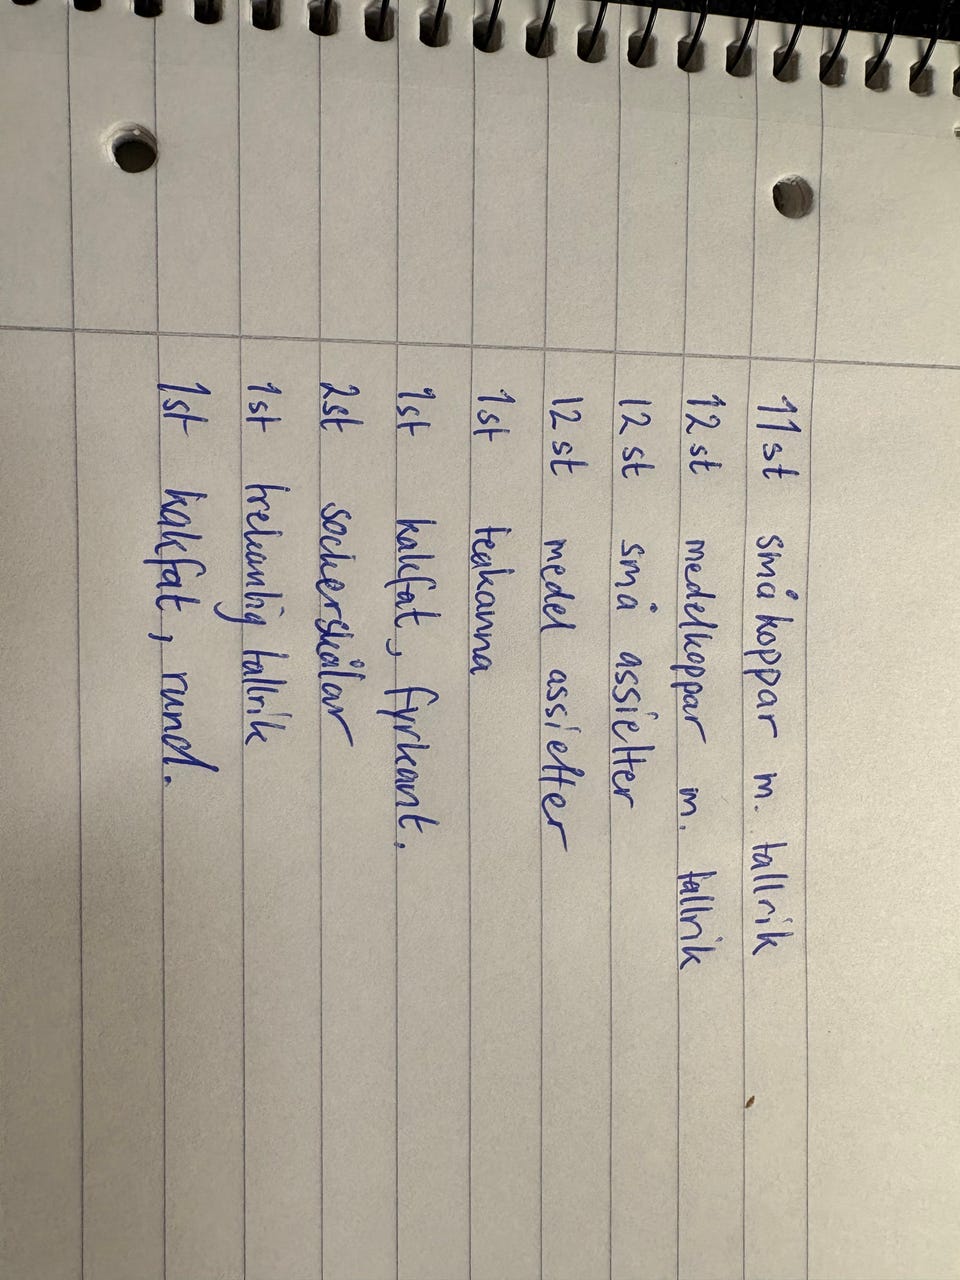 11st små koppar m. tallrik
12st medelkoppar m. tallrik
12st små assietter
12st medel assietter
1st tekanna
1st kakfat, fyrkant.
2st sockerskålar
1st trekantig tallrik
1st kakfat, rund.